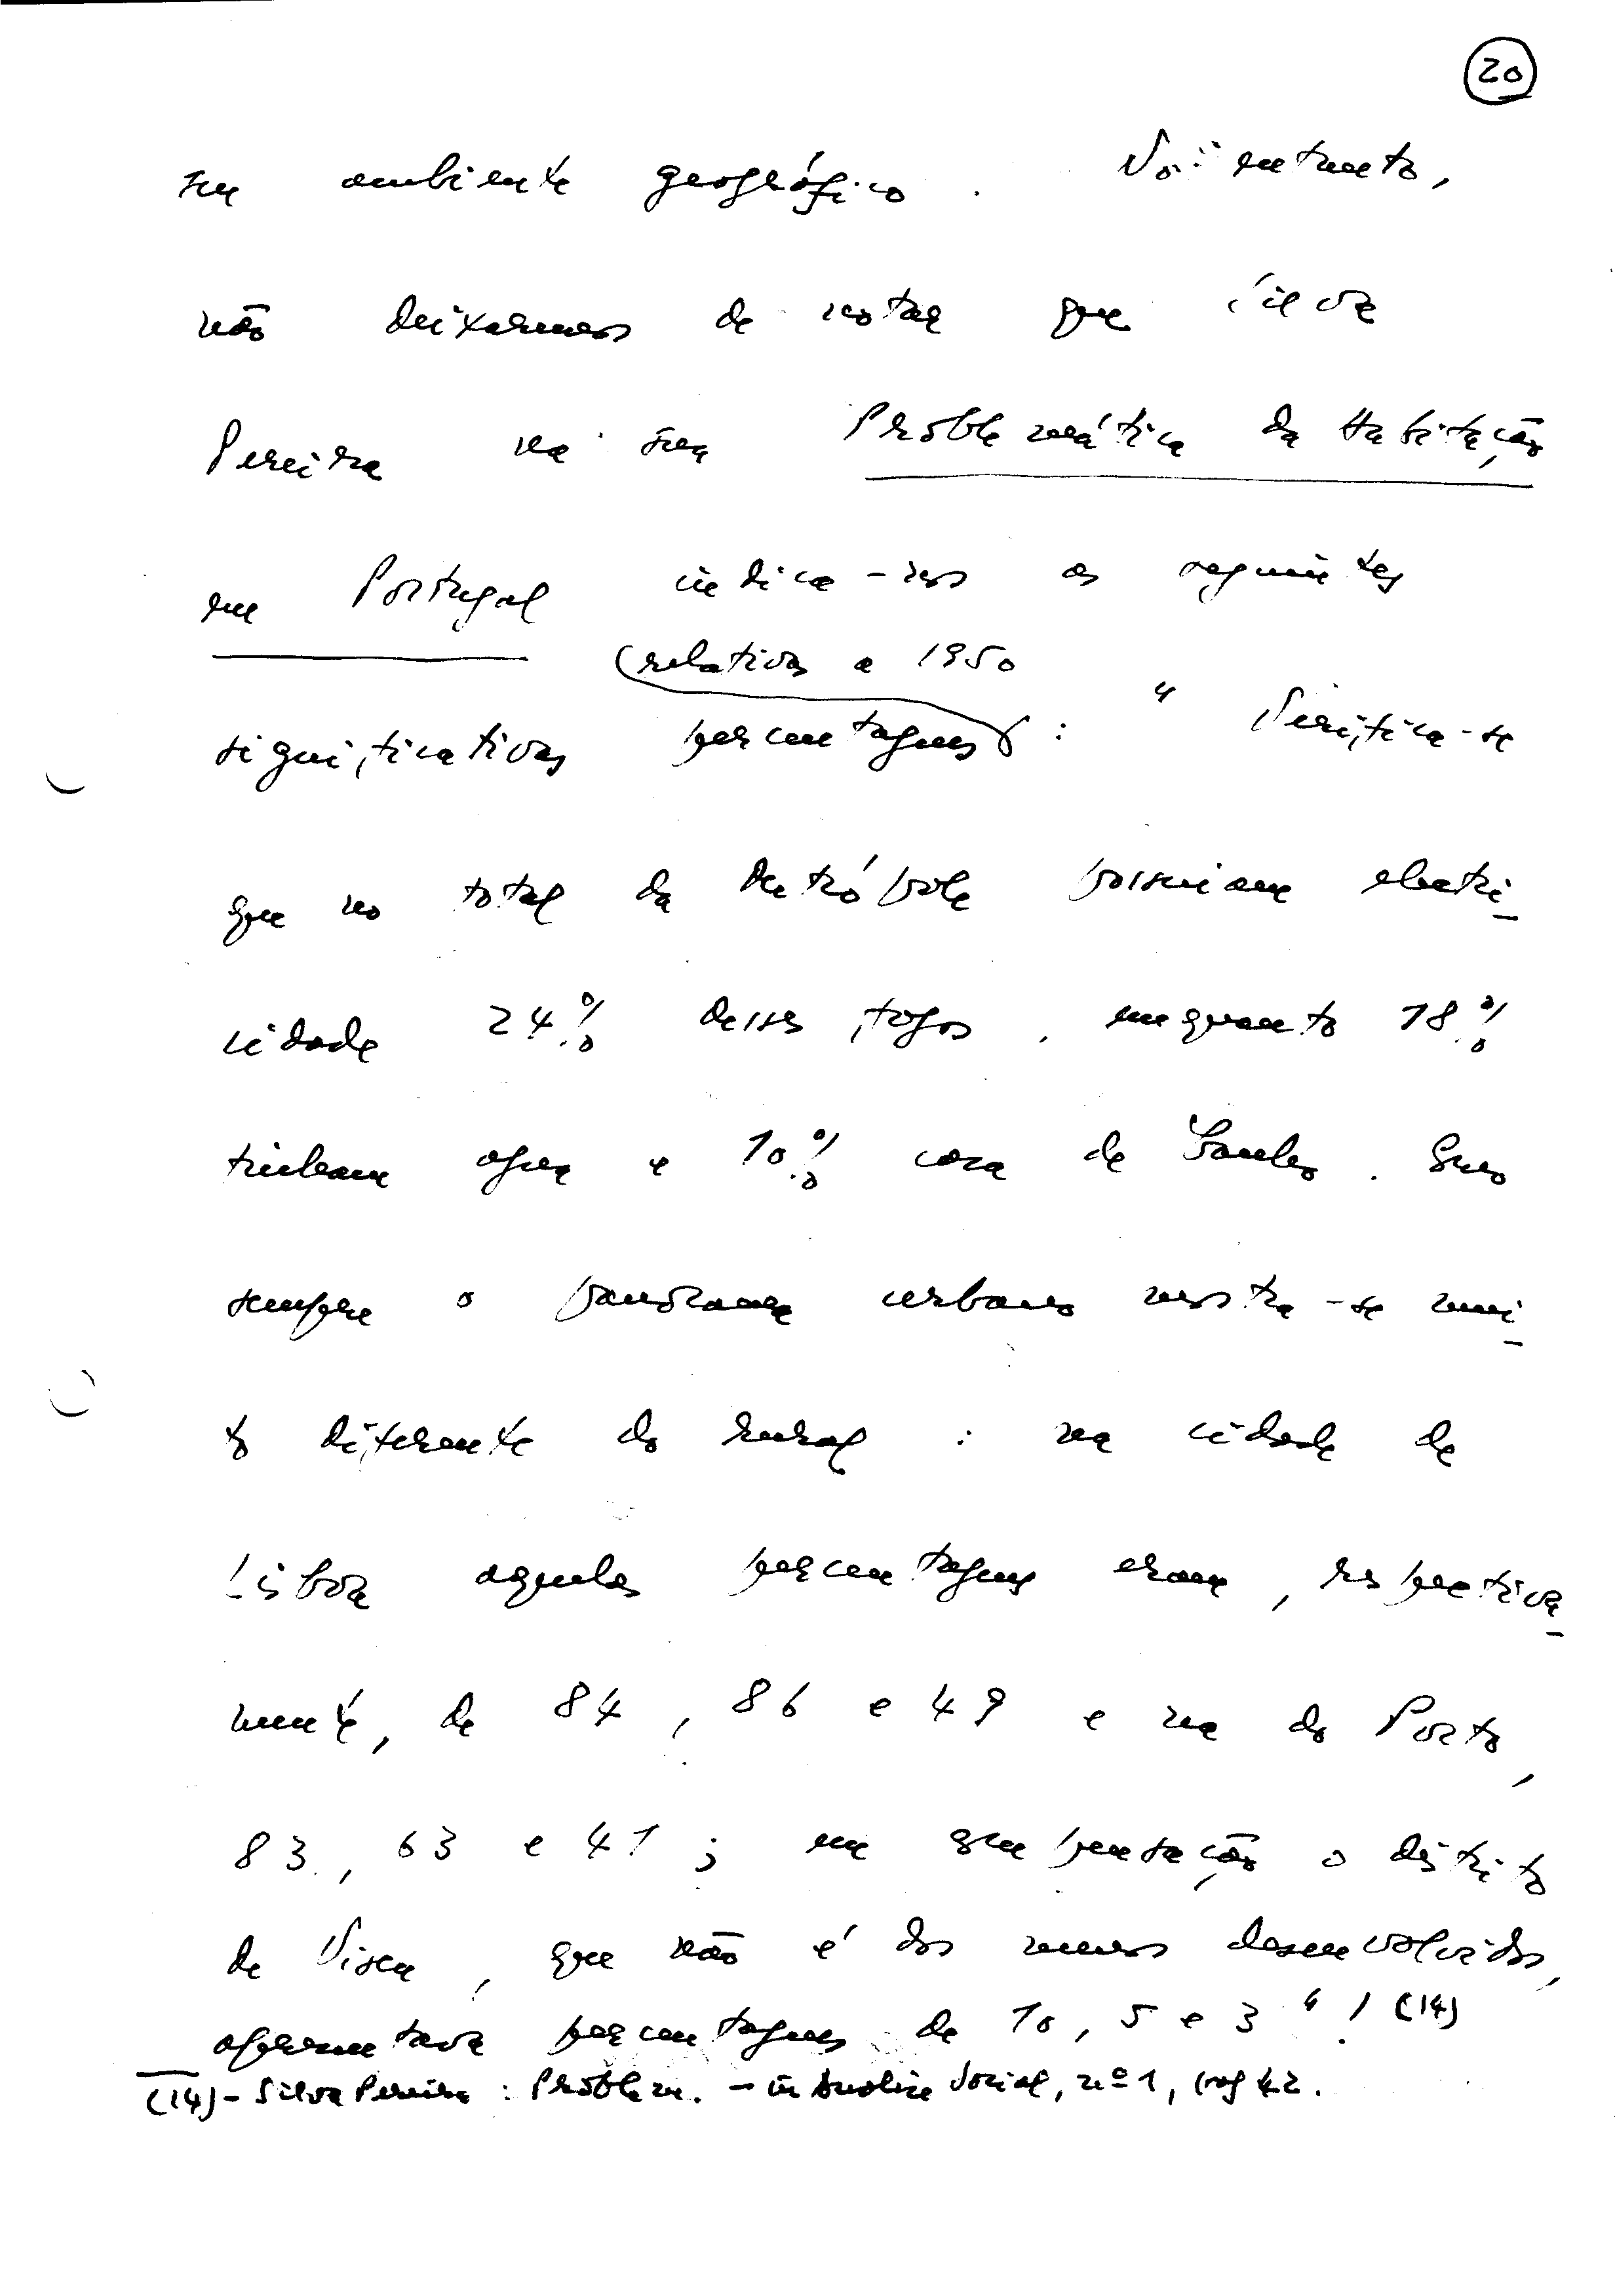 20
seu ambiente geográfico. No entanto,
não deixaremos de notar que Silva
Pereira na sua Problemática da Habitação
em Portugal indica-nos as seguintes
(relativas a 1950
significativas percentagens) : " Verifica-se
que no total da Metrópole possuiam electri-
cidade 24% desses fogos, enquanto 18%
tinham agua e 10% casa de banho.
sempre o panorama urbano mostra-se mui-
to diferente do rural : na cidade de
Lisboa aquelas percentagens eram, respectiva-
mente, de 84, 86 e 49 e na do Porto,
83, 63 e 41 ; em compensação o distrito
de Viseu, que não é dos menos desenvolvidos,
apresentava percentagens de 10, 5 e 3 " ! (14)
(14) - Silva Pereira : Problem. - in Análise Social, nº 1, pag 42.